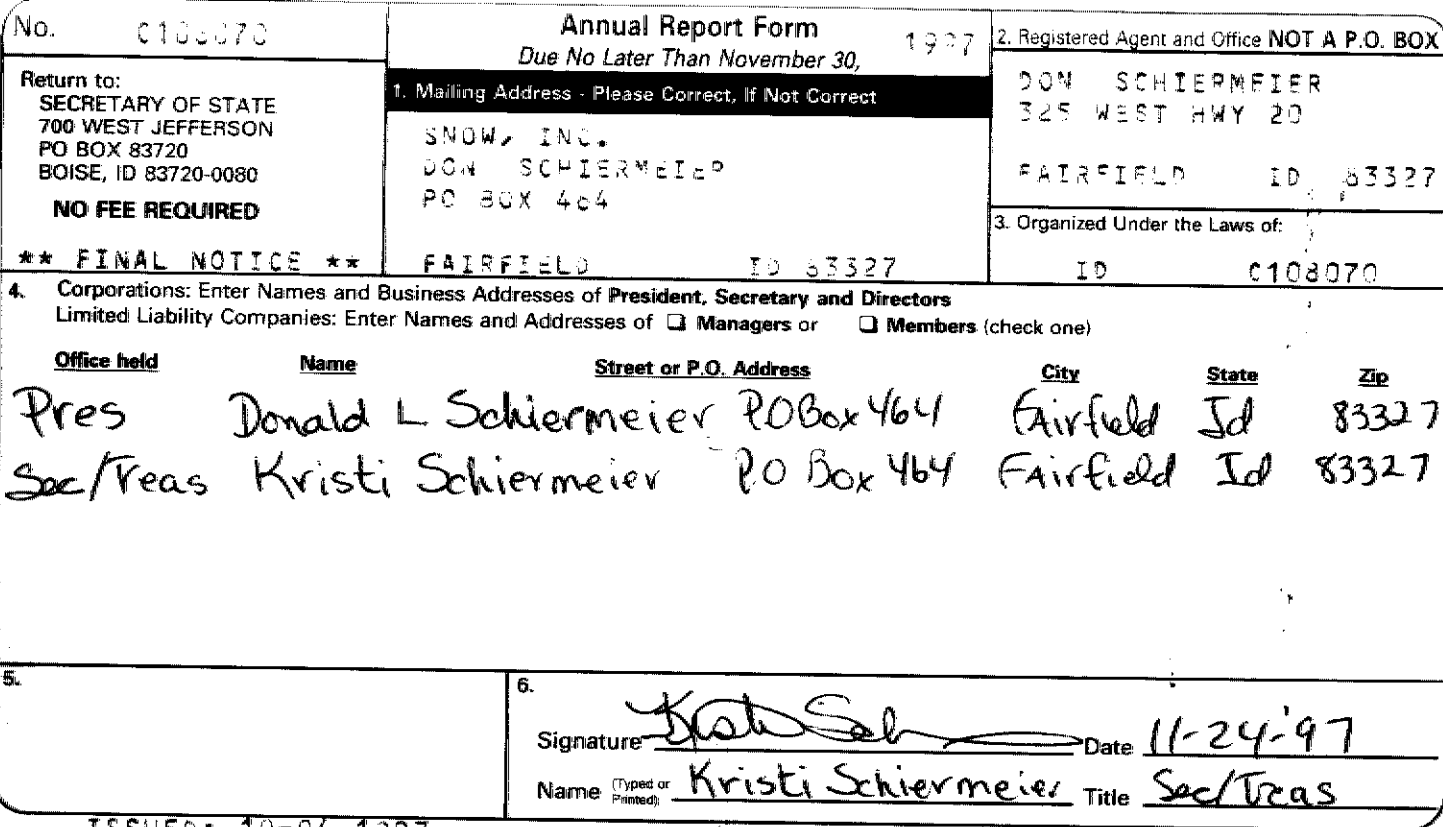 No. C108070
Annual Report Form
Due No Later Than November 30, 1997
Return to:
SECRETARY OF STATE
700 WEST JEFFERSON
PO BOX 83720
BOISE, ID 83720-0080
NO FEE REQUIRED
** FINAL NOTICE **
1. Mailing Address - Please Correct, If Not Correct
SNOW, INC.
DON SCHIERMEIER
PO BOX 464
FAIRFIELD ID 83327
2. Registered Agent and Office NOT A P.O. BOX
DON SCHIERMEIER
325 WEST HWY 20
FAIRFIELD ID 83327
3. Organized Under the Laws of:
ID C108070
4. Corporations: Enter Names and Business Addresses of President, Secretary and Directors
Limited Liability Companies: Enter Names and Addresses of ❑ Managers or ❑ Members (check one)
Office held Name Street or P.O. Address City State Zip
Pres Donald L Schiermeier P.O Box 464 Fairfield Id 83327
Sec/Treas Kristi Schiermeier P.O Box 464 Fairfield Id 83327
5.
6.
Signature Date 11-24-97
Name (Typed or Printed): Kristi Schiermeier Title Sec/Treas